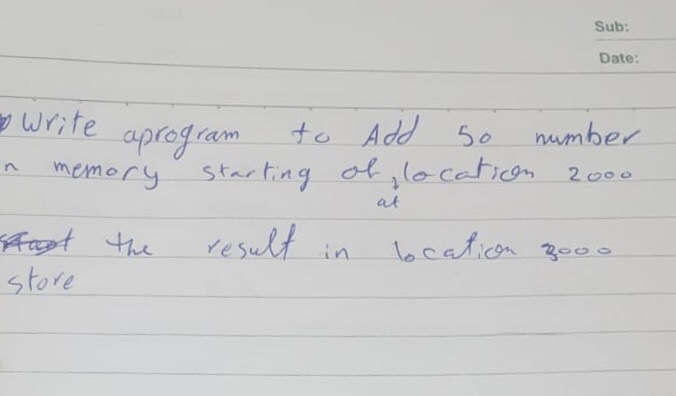 Sub:
Date:
Write aprogram to Add 50 number
n memory starting of location 2000
at
the result in location 3000
store